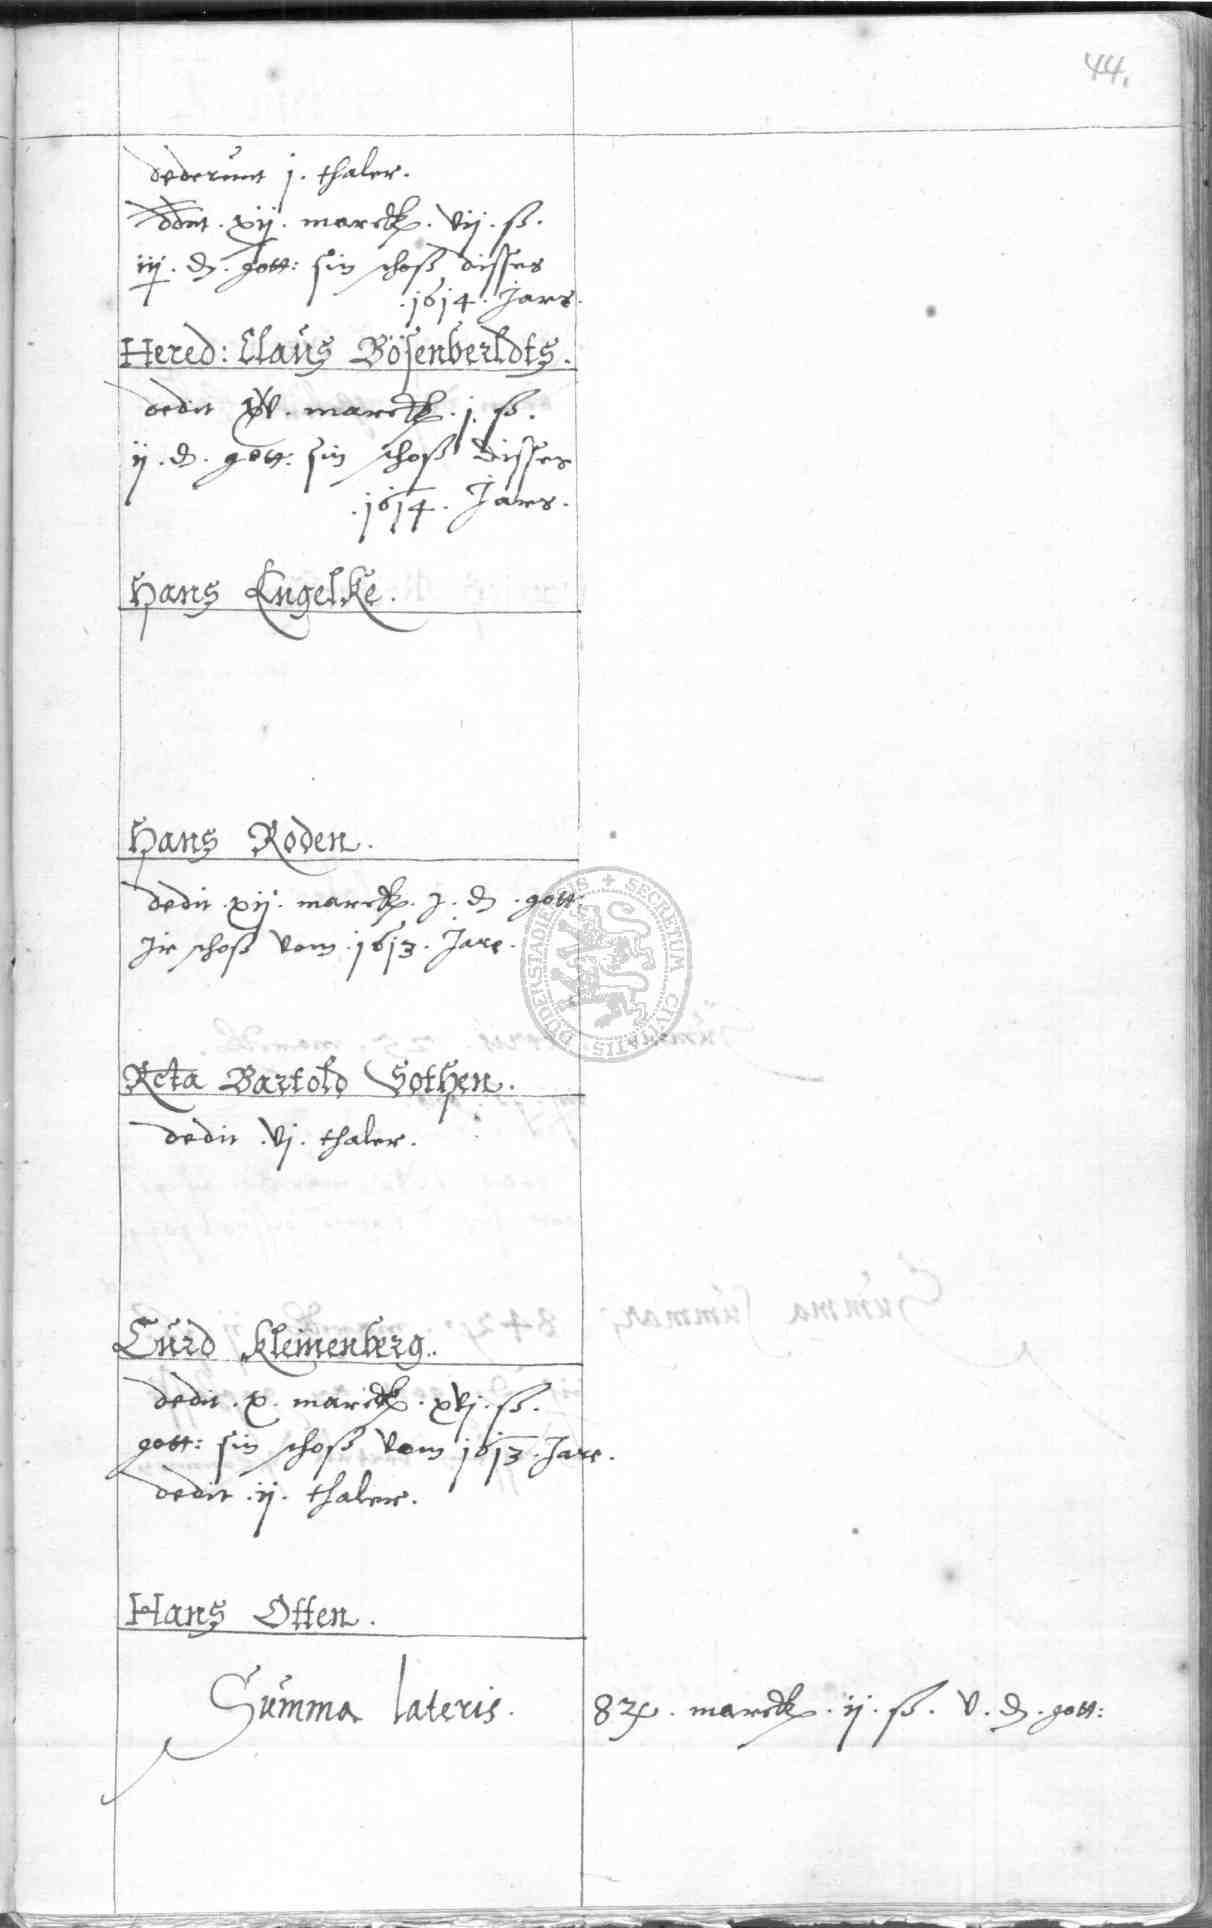 44.
dederunt j. thaler.
ddnt. xij. marck. vij. ß.
iij. d. gott: sin schoß disses
.1614. Jars.
Hered: Claus Bösenberldts.
dedit xv. marck. j. ß.
ij. d. gott: sin schoß disses
.1614. Jars.
Hans Engelke.
Hans Roden.
dedit. xij. marck. j. d. gott:
Jr schoß vom .1613. Jare.
Rcta Bartold Hothen.
dedit. vj. thaler.
Curd Kleinenberg.
dedit. x. marck. xvj. ß.
gott: sin schoß vom 1613. Jare.
dedit .ij. thaler.
Hans Otten.
Summa lateris. marck. ij. ß. v. d. gott:
SECRETUM CIVITATIS DUDERSTADIENSIS